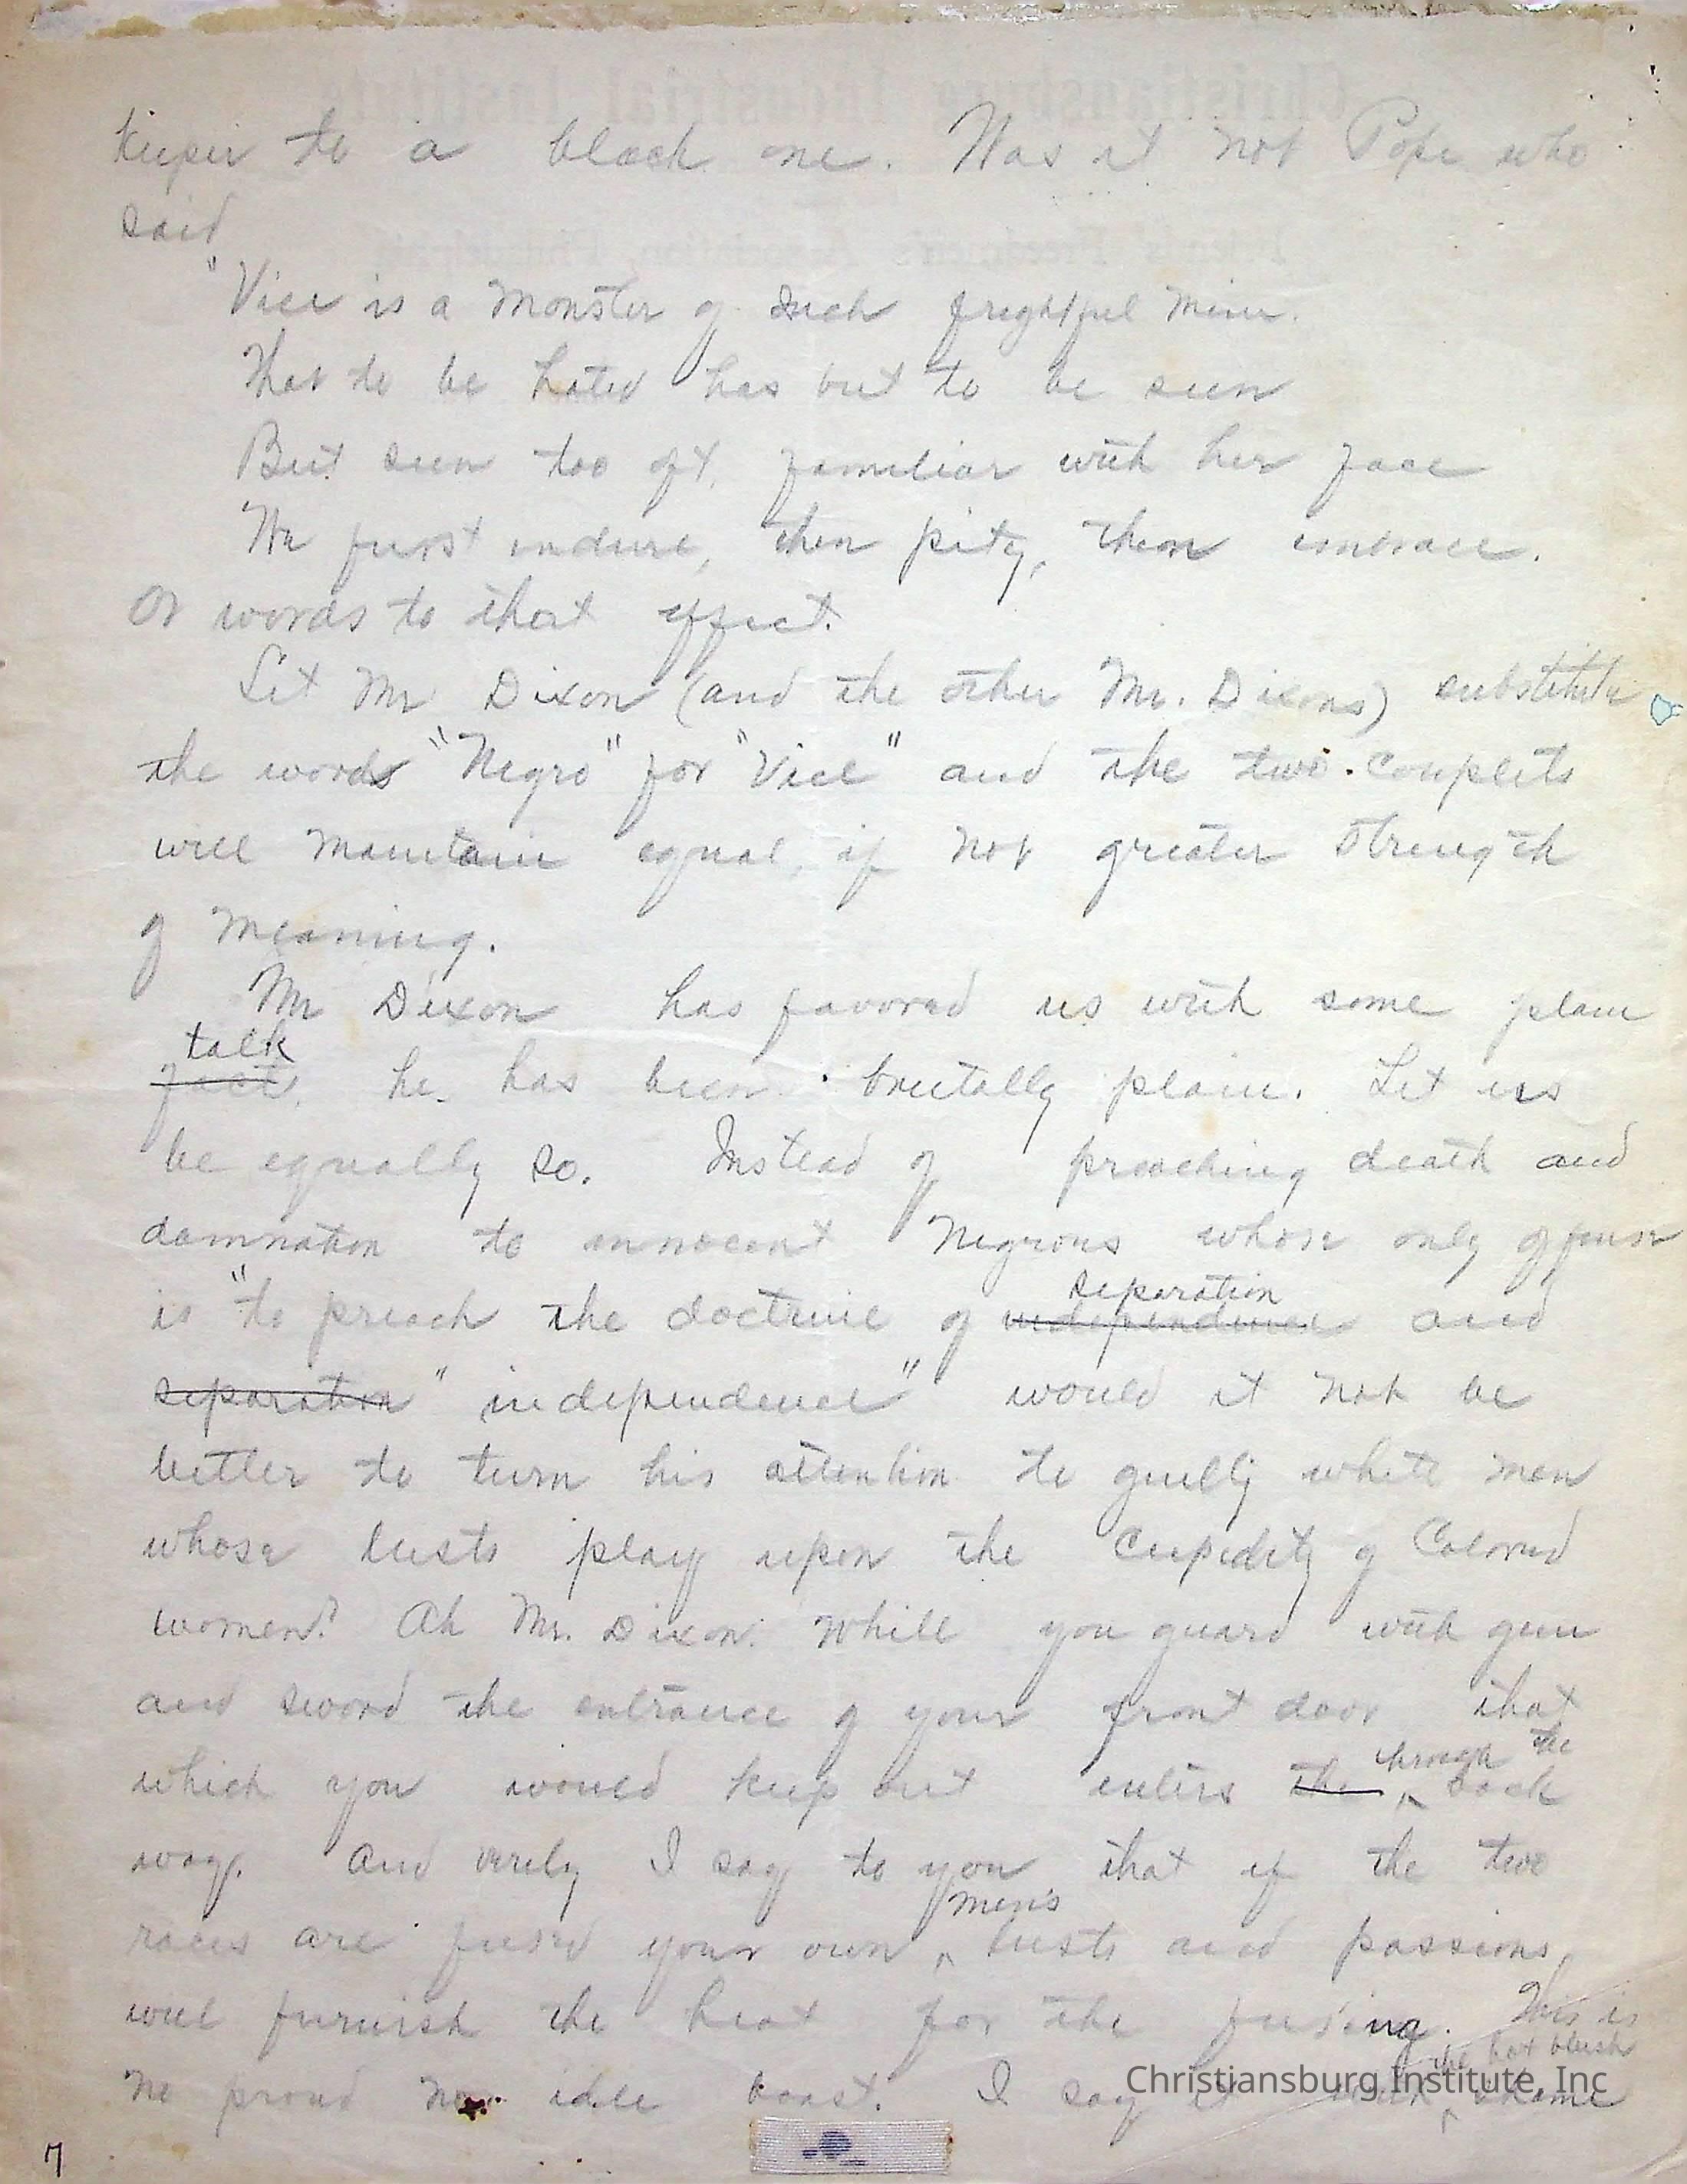 keeper to a black one. Was it not Pope who
said
"Vice is a monster of such frightful mien.
That to be hated has but to be seen
But seen too oft, familiar with her face
We first endure, then pity, then embrace.
Or words to that effect.
Let Mr Dixon (and the other Mr. Dixons) substitute
the words "Negro" for "Vice" and the two couplets
will maintain equal, if not greater strength
of meaning.
Mr Dixon has favored us with some plain
talk
fact, he has been brutally plain. Let us
be equally so. Instead of preaching death and
damnation to innocent Negroes whose only offense
separation
is "to preach the doctrine of independence and
separation "independence" would it not be
better to turn his attention to guilty white men
whose lusts play upon the cupidity of Colored
women? Ah Mr. Dixon. While you guard with gun
and sword the entrance of your front door that
through the
which you would keep out enters the ^ back
way. And verily I say to you that if the two
men's
races are fused your own ^ lusts and passions,
will furnish the heat for the fusing. This is
the hot blush
no proud nor idle boast. I say it with ^ shame
7
Christiansburg Industrial Institute
Friends' Freedmen's Association, Philadelphia
Christiansburg Institute, Inc